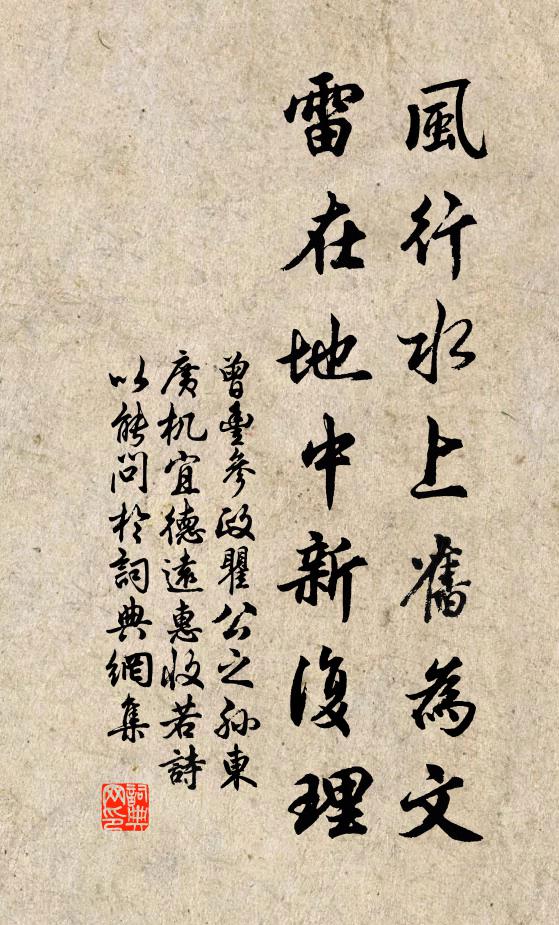 風行水上舊為文
雷在地中新復理
曾豐參政瞿公之孫東
廣机宜德遠惠收若詩
以能問於詞典網集
詞典
网印